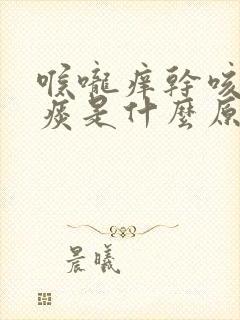 喉嚨痒幹咳
痰是什麼原
晨曦